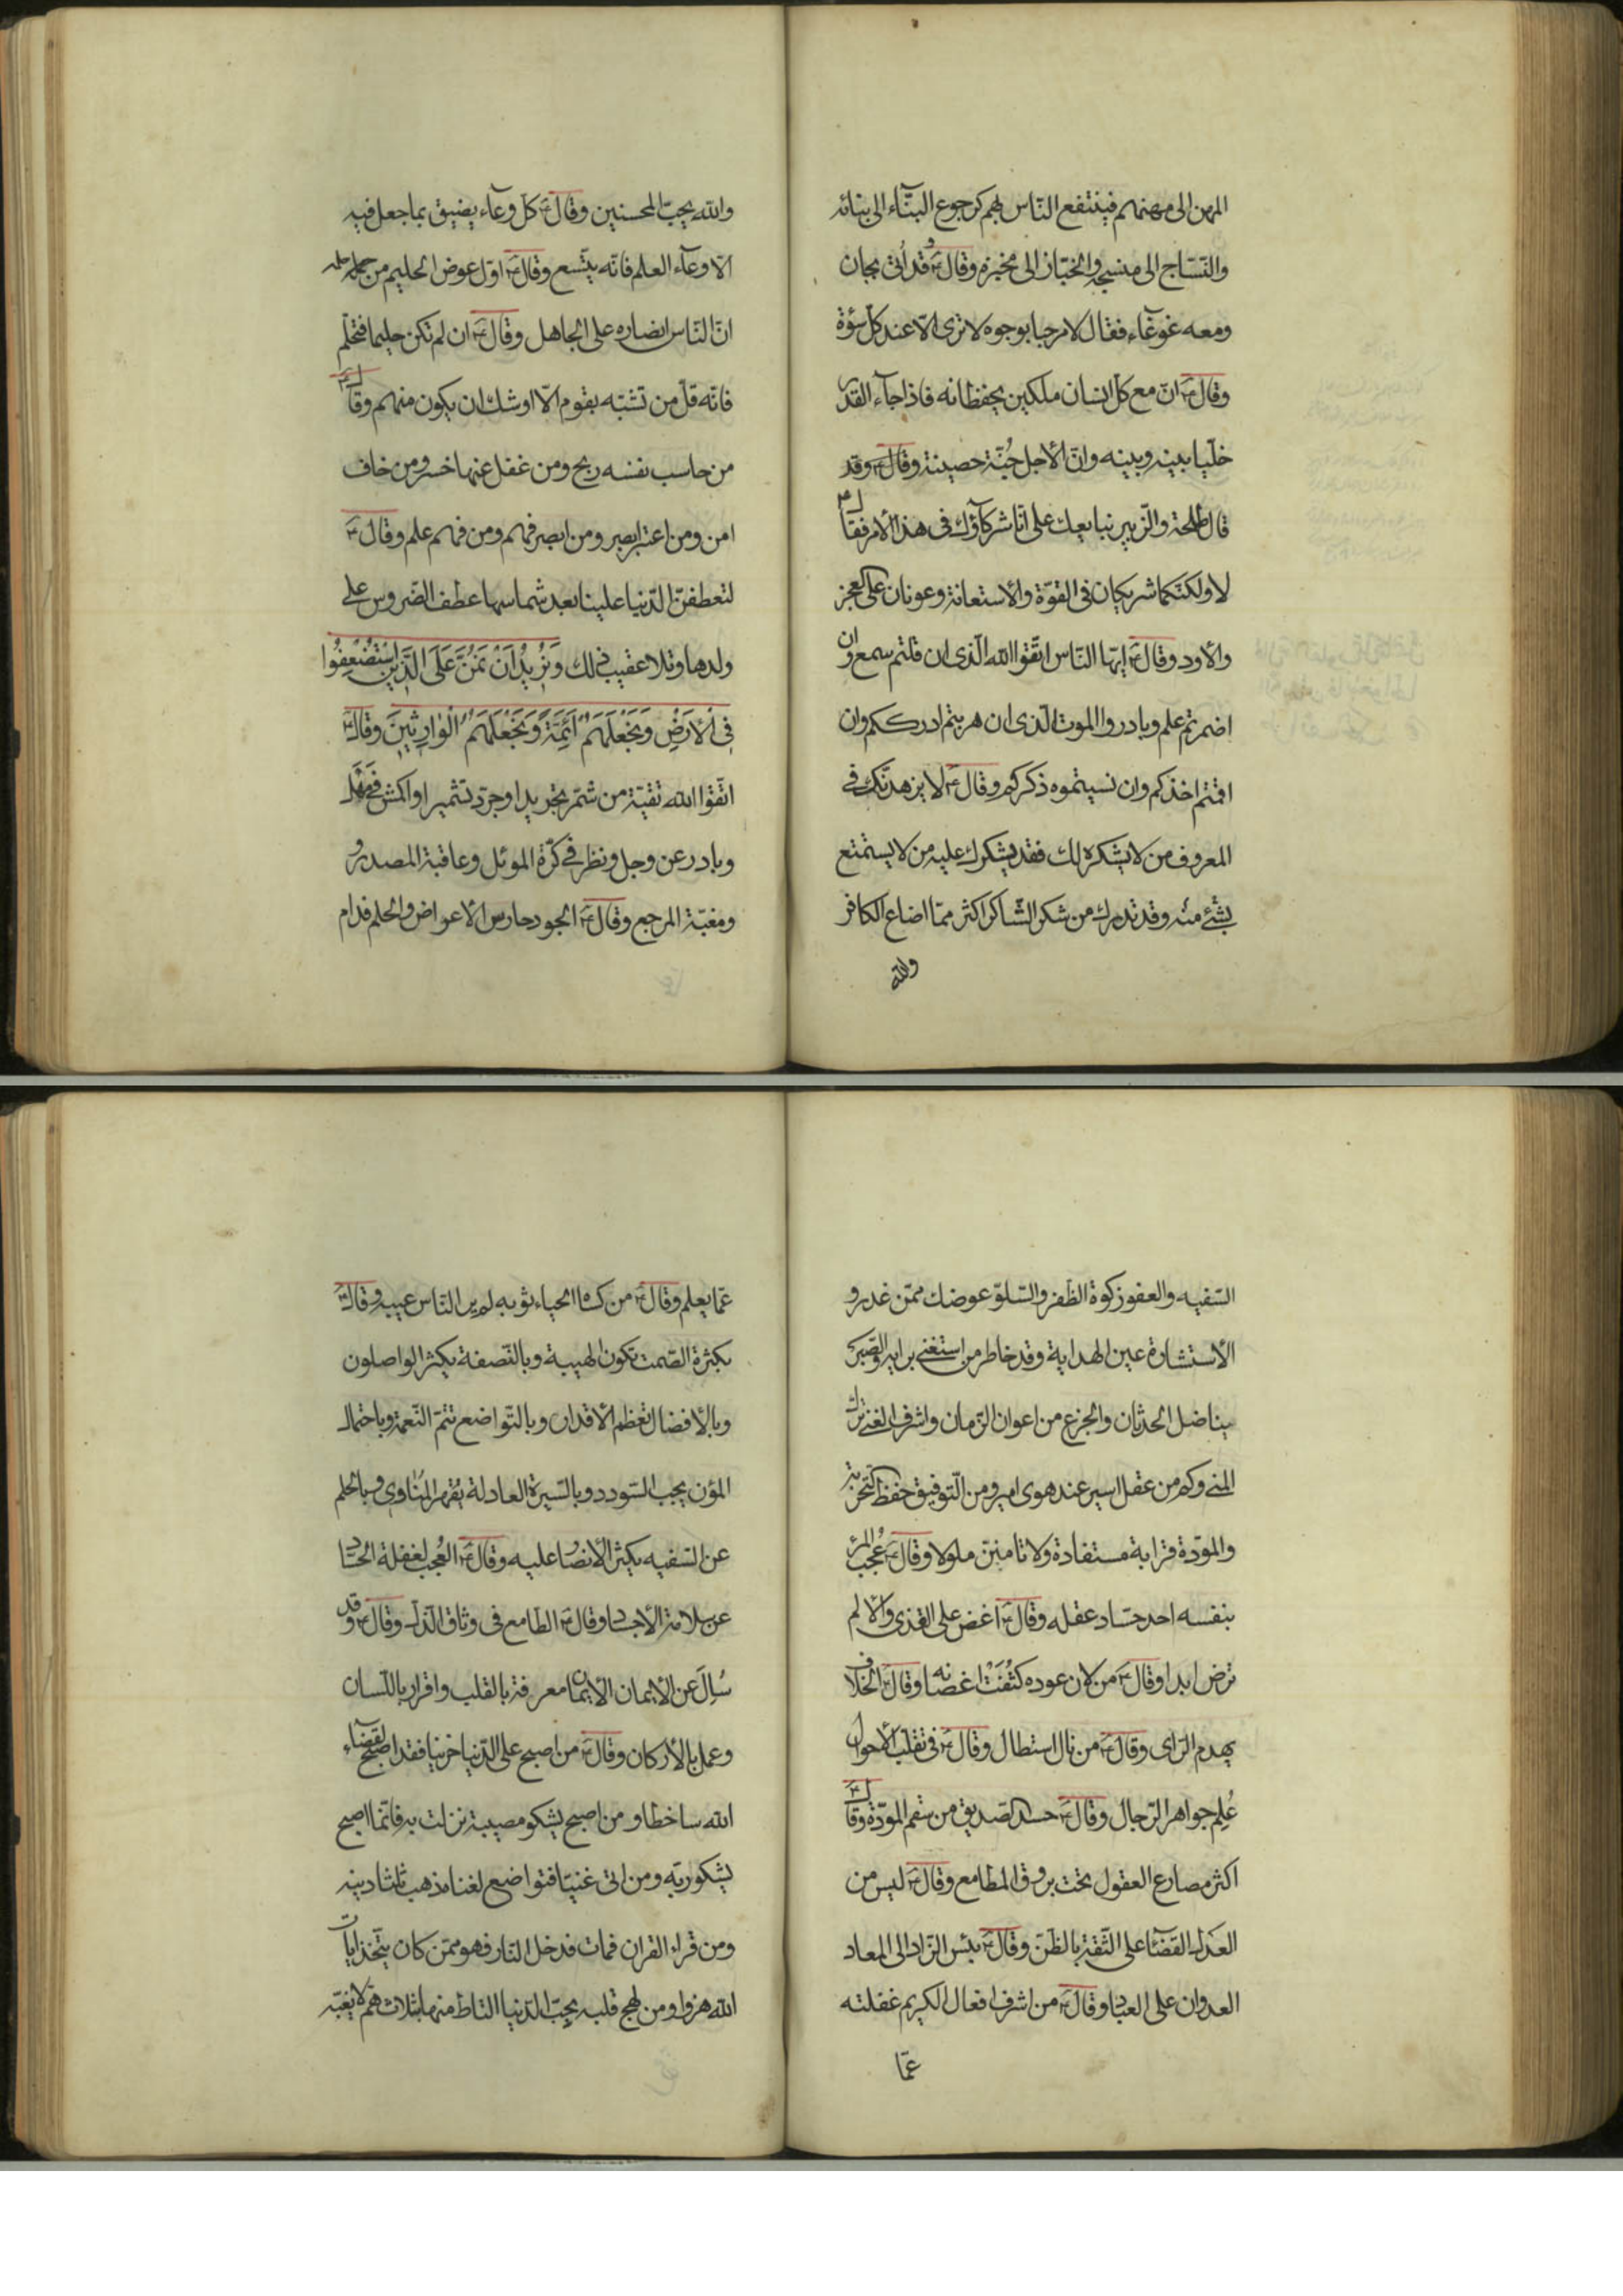 المهن الى مهنهم فينتفع النّاس بهم كرجوع البنّاء الى بنائه
والنّسّاج الى منسجه والخبّاز الى مخبزه وقال ع و قد أتى بجان
ومعه غوغاء فقال لا مرحبا بوجوه لا ترى الّا عند كلّ سوءة
وقال ع انّ مع كلّ انسان ملكين يحفظانه فاذا جآء القدر
خلّيا بينه وبينه وانّ الأجل جُنّة حصينة وقال ع وقد
قال طلحة والزّبير نبايعك على انّا شركآؤك فى هذا الأمر فقال ع
لا ولكنّكما شريكان فى القوّة والأستعانة وعونان على العجز
والأود وقال ع ايّها النّاس اتّقوا الله الّذى ان قلتم سمع وان
اضمرتم علم وبادروا الموت الّذى ان هربتم ادرككم وان
اقمتم اخذكم وان نسيتموه ذكركم وقال ع لا يزهدنّك فى
المعروف من لا يشكره لك فقد يشكرك عليه من لا يستمتع
بشئ منه وقد تدرك من شكر الشّاكر اكثر ممّا اضاع الكافر
والله
والله يحبّ المحسنين وقال ع كلّ وعآء يضيق بما جعل فيه
الّا وعآء العلم فانّه يتّسع وقال ع اوّل عوض الحليم من حلمه
انّ النّاس انصاره على الجاهل وقال ع ان لم تكن حليما فتحلّم
فانّه قلّ من تشبّه بقوم الّا اوشك ان يكون منهم وقال ع
من حاسب نفسه ربح ومن غفل عنها خسر ومن خاف
امن ومن اعتبر ابصر ومن ابصر فهم ومن فهم علم وقال ع
لتعطفنّ الدّنيا علينا بعد شماسها عطف الضّروس على
ولدها وتلا عقيب ذلك وَنُرِيدُ اَنْ نَمُنَّ عَلَى الَّذِينَ اسْتُضْعِفُوا
فِى الْأَرْضِ وَنَجْعَلَهُمْ اَئِمَّةً وَنَجْعَلَهُمُ الْوَارِثِينَ وقال ع
اتّقوا الله تقيّة من شمّر تجريدا وجرّد تشميرا واكمش فى مَهَل
وبادر عن وجل ونظر فى كرّة الموئل وعاقبة المصدر و
ومغبّة المرجع وقال ع الجود حارس الاعراض والحلم فدام
السّفيه والعفو زكوة الظّفر والسّلوّ عوضك ممّن غدر و
الأستشارة عين الهداية وقد خاطر من استغنى برايه والصّبر
يناضل الحدثان والجزع من اعوان الزّمان واشرف الغنى ترك
المنى وكم من عقل اسير عند هوى امير ومن التّوفيق حفظ التّجربة
والمودّة قرابة مستفادة ولا تامننّ ملولا وقال ع عُجب المرء
بنفسه احد حسّاد عقله وقال ع اغض على القذى والّا لم
ترض ابدا وقال ع من لان عوده كثُفَتْ اغصانه وقال ع الخلاف
يهدم الرّاى وقال ع من نال استطال وقال ع فى تقلّب الأحوال
عُلِم جواهر الرّجال وقال ع حسد الصّديق من سقم المودّة وقال ع
اكثر مصارع العقول تحت بروق المطامع وقال ع ليس من
العدل القضآء على الثّقة بالظّنّ وقال ع بئس الزّاد الى المعاد
العدوان على العباد وقال ع من اشرف افعال الكريم غفلته
عمّا
عمّا يعلم وقال ع من كساه الحياء ثوبه لم ير النّاس عيبه وقال ع
بكثرة الصّمت تكون الهيبة وبالنّصفة يكثر الواصلون
وبالأفضال تعظم الاقدار وبالتّواضع تتمّ النّعمة وباحتمال
المؤن يجب السّودد وبالسّيرة العادلة يُقهر المناوى وبالحلم
عن السّفيه يكثر الأنصار عليه وقال ع العُجب لغفلة الحسّاد
عن سلامة الأجساد وقال ع الطّامع فى وثاق الذّلّ وقال ع وقد
سُئِلَ عن الأيمان الأيمان معرفة بالقلب واقرار باللّسان
وعمل بالأركان وقال ع من اصبح على الدّنيا حزينا فقد اصبح لقضآء
الله ساخطا ومن اصبح يشكو مصيبة نزلت به فانّما اصبح
يشكو ربّه ومن اتى غنيّا فتواضع لغناه ذهب ثلثا دينه
ومن قراء القران فمات فدخل النّار فهو ممّن كان يتّخذ ايات
الله هزوا ومن لهج قلبه بحبّ الدّنيا التاط منها بثلاث همّ لا يغبّه